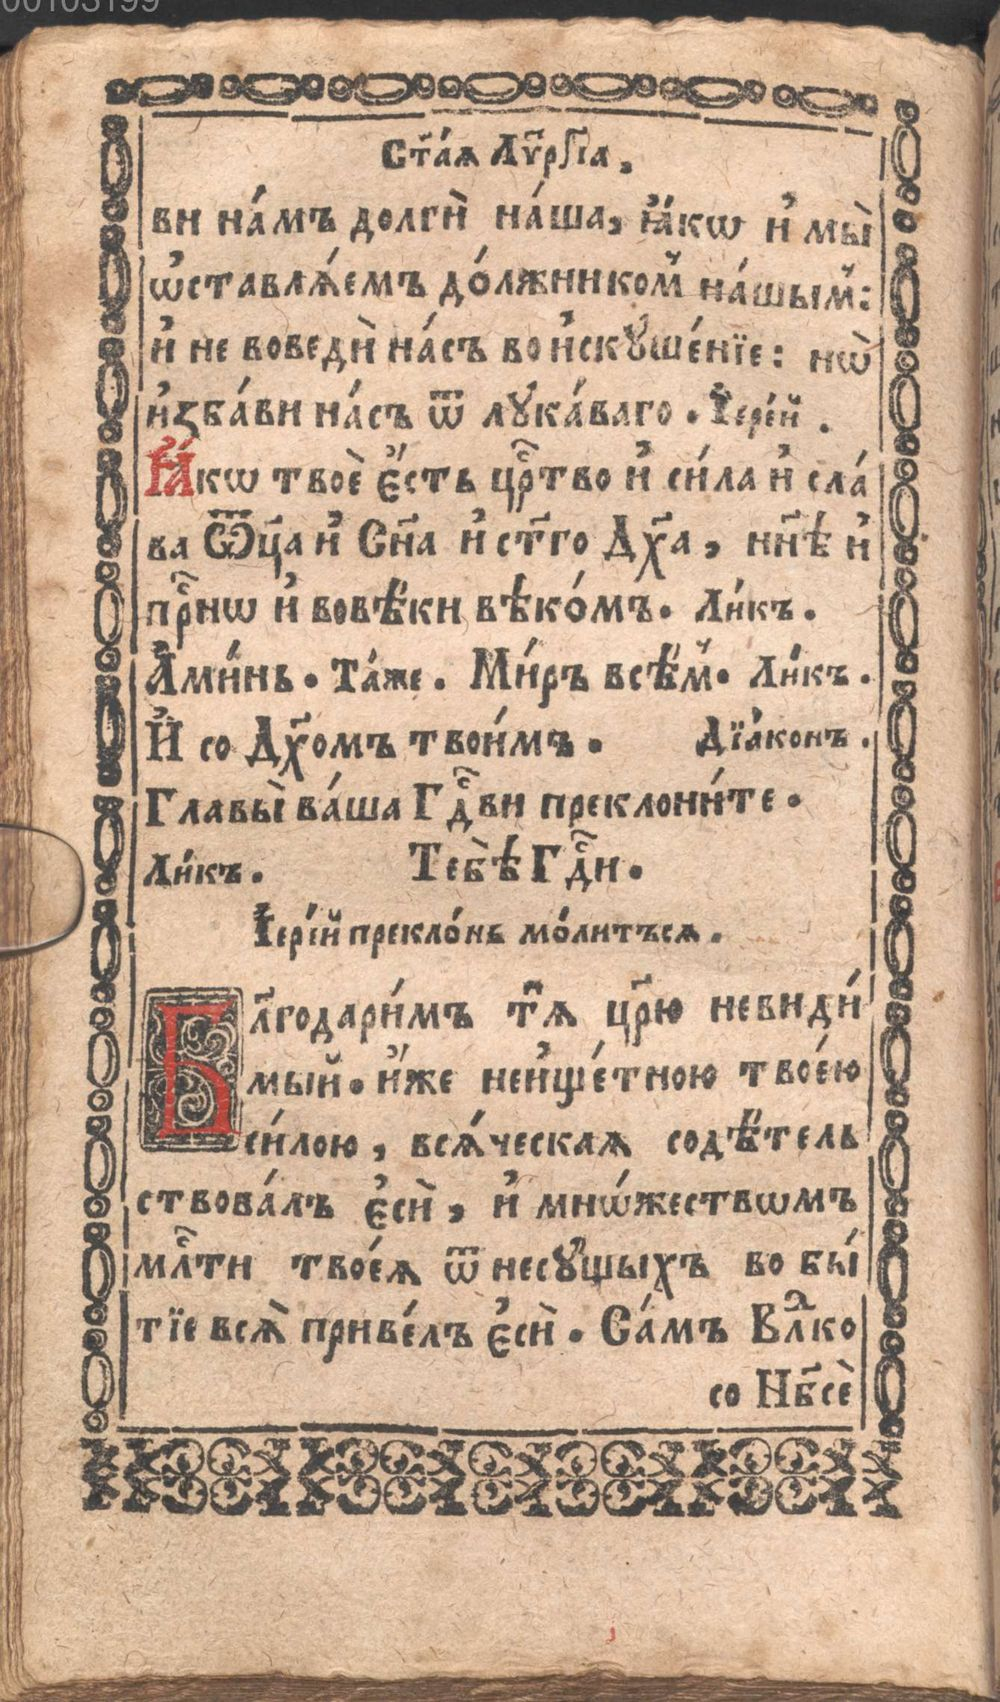 00103199
Ст҃а́ѧ Лѵ҃рғі́а,
ви на́мъ долгѝ на́ша, ꙗ҆́кѡ и҆ мы̀
ѡ҆ставлѧ́емъ до́лжникоⷨ на́шыⷨ:
и҆ не воведѝ на́съ во и҆скꙋше́нїе: нѡ̀
и҆зба́ви на́съ ѿ лꙋка́ваго. І҆ере́й.
Ꙗ҆́кѡ твоѐ є҆́сть црⷭ҇тво и҆ си́ла и҆ сла́
ва Ѿц҃а и҆ Сн҃а и҆ ст҃го Дх҃а, нн҃ѣ и҆
прⷭ҇нѡ и҆ вовѣ́ки вѣко́мъ. Ли́къ.
А҆ми́нь. Та́же. Ми́ръ всѣ́ⷨ. Ли́къ.
И҆ со Дх҃омъ твои́мъ. Дїа́конъ.
Главы̀ ва́ша Гдⷭ҇ви преклони́те.
Ли́къ. Тебѣ̀ Гдⷭ҇и.
І҆ере́й прекло́нь мо́литъсѧ.
Бл҃годари́мъ тѧ̀ цр҃ю неви́ди́
мый. и҆́же неищ҆е́тною твое́ю
си́лою, всѧ́ческаѧ содѣ́тель
ствова́лъ є҆сѝ, и҆ мнѡ́жествѡмъ
млⷭ҇ти твоеѧ́ ѿ несꙋ́щыхъ во бы́
тїе всѧ̀ приве́лъ є҆сѝ. Са́мъ Влⷣко
со Нб҃сѐ